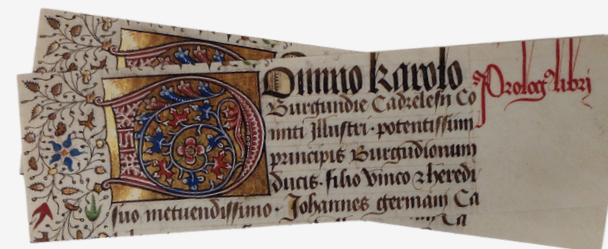 Domino karolo
Prologꝰ libri
Burgundie Cadrelesij Co
miti Illustri · potentissimi
principis Burgundionum
ducis · filio vnico ⁊ heredi
suo metuendissimo · Johannes germani Ca